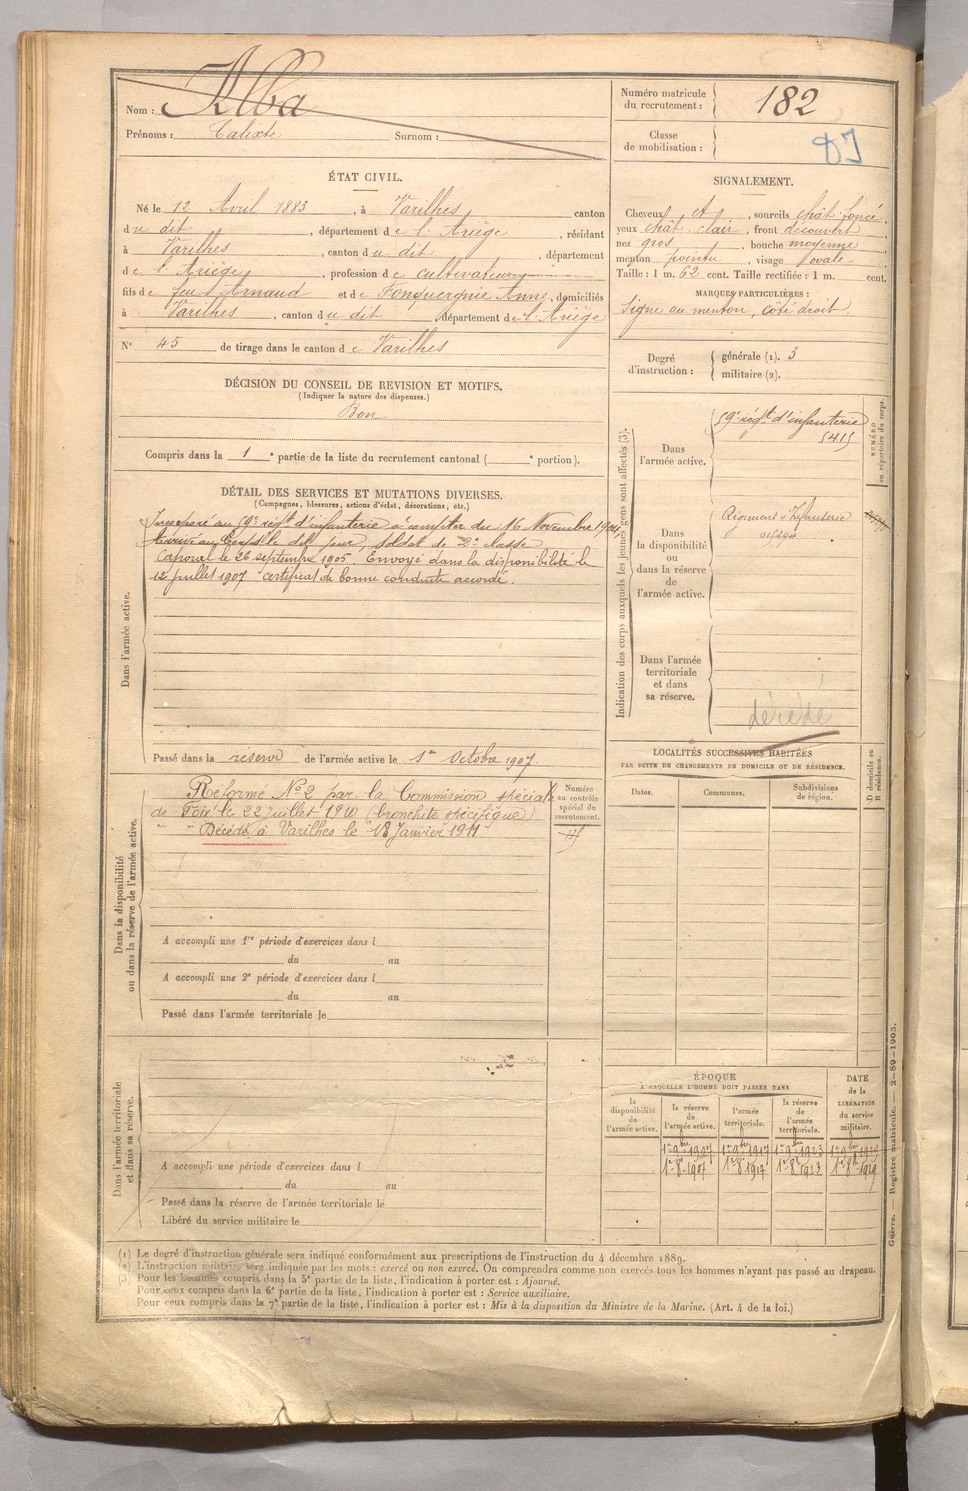 Nom : Alba
Prénoms : Calixte Surnom :
Numéro matricule du recrutement : 182
Classe de mobilisation :
ÉTAT CIVIL.
Né le 12 Avril 1883, à Varilhes, canton
du dit, département de l'Ariège, résidant
à Varilhes, canton du dit, département
de l'Ariège, profession de cultivateur
fils de feu Arnaud et de Fonquergnie Anne, domiciliés
à Varilhes, canton du dit, département de l'Ariège
N° 45 de tirage dans le canton de Varilhes
DÉCISION DU CONSEIL DE REVISION ET MOTIFS.
(Indiquer la nature des dispenses.)
Bon
Compris dans la 1e partie de la liste du recrutement cantonal ( e portion).
SIGNALEMENT.
Cheveux et, sourcils chât foncé,
yeux chât. clair, front découvert,
nez gros, bouche moyenne
menton pointu, visage ovale
Taille : 1 m. 62 cent. Taille rectifiée : 1 m. cent.
MARQUES PARTICULIÈRES :
Signe au menton, côté droit.
Degré d'instruction :
générale (1). 3
militaire (2).
DÉTAIL DES SERVICES ET MUTATIONS DIVERSES.
(Campagnes, blessures, actions d'éclat, décorations, etc.)
Dans l'armée active.
Incorporé au 59e régt d'infanterie à compter du 16 Novembre 1904,
Arrivé au Corps le dit jour, soldat de 2e classe
Caporal le 26 septembre 1905. Envoyé dans la disponibilité le
12 Juillet 1907 certificat de bonne conduite accordé.
Passé dans la réserve de l'armée active le 1er Octobre 1907.
Indication des corps auxquels les jeunes gens sont affectés (3).
NUMÉRO au répertoire du corps.
Dans l'armée active.
59e régt d'infanterie
5415
Dans la disponibilité ou dans la réserve de l'armée active.
Régiment d'Infanterie
Dans l'armée territoriale et dans sa réserve.
décédé
Dans la disponibilité ou dans la réserve de l'armée active.
Réformé N° 2 par la Commission spéciale
de Foix le 22 juillet 1910 (bronchite spécifique)
Décédé à Varilhes le 18 Janvier 1911
Numéro au contrôle spécial du recrutement.
A accompli une 1re période d'exercices dans l
du au
A accompli une 2e période d'exercices dans l
du au
Passé dans l'armée territoriale le
LOCALITÉS SUCCESSIVES HABITÉES
PAR SUITE DE CHANGEMENTS DE DOMICILE OU DE RÉSIDENCE.
Dates. Communes. Subdivisions de région.
D domicile ou R résidence.
Dans l'armée territoriale et dans sa réserve.
A accompli une période d'exercices dans l
du au
Passé dans la réserve de l'armée territoriale le
Libéré du service militaire le
ÉPOQUE
A LAQUELLE L'HOMME DOIT PASSER DANS
la disponibilité de l'armée active.
la réserve de l'armée active.
l'armée territoriale.
la réserve de l'armée territoriale.
DATE de la LIBÉRATION du service militaire.
1er 9bre 1907 1er 9bre 1917 1er 9bre 1923 1er 9bre 1929
1er 8bre 1907 1er 8bre 1917 1er 8bre 1923 1er 8bre 1929
Guerre. — Registre matricule. — 2-89-1903.
(1) Le degré d'instruction générale sera indiqué conformément aux prescriptions de l'instruction du 4 décembre 1889.
(2) L'instruction militaire sera indiquée par les mots : exercé ou non exercé. On comprendra comme non exercés tous les hommes n'ayant pas passé au drapeau.
(3) Pour les hommes compris dans la 5e partie de la liste, l'indication à porter est : Ajourné.
Pour ceux compris dans la 6e partie de la liste, l'indication à porter est : Service auxiliaire.
Pour ceux compris dans la 7e partie de la liste, l'indication à porter est : Mis à la disposition du Ministre de la Marine. (Art. 4 de la loi.)